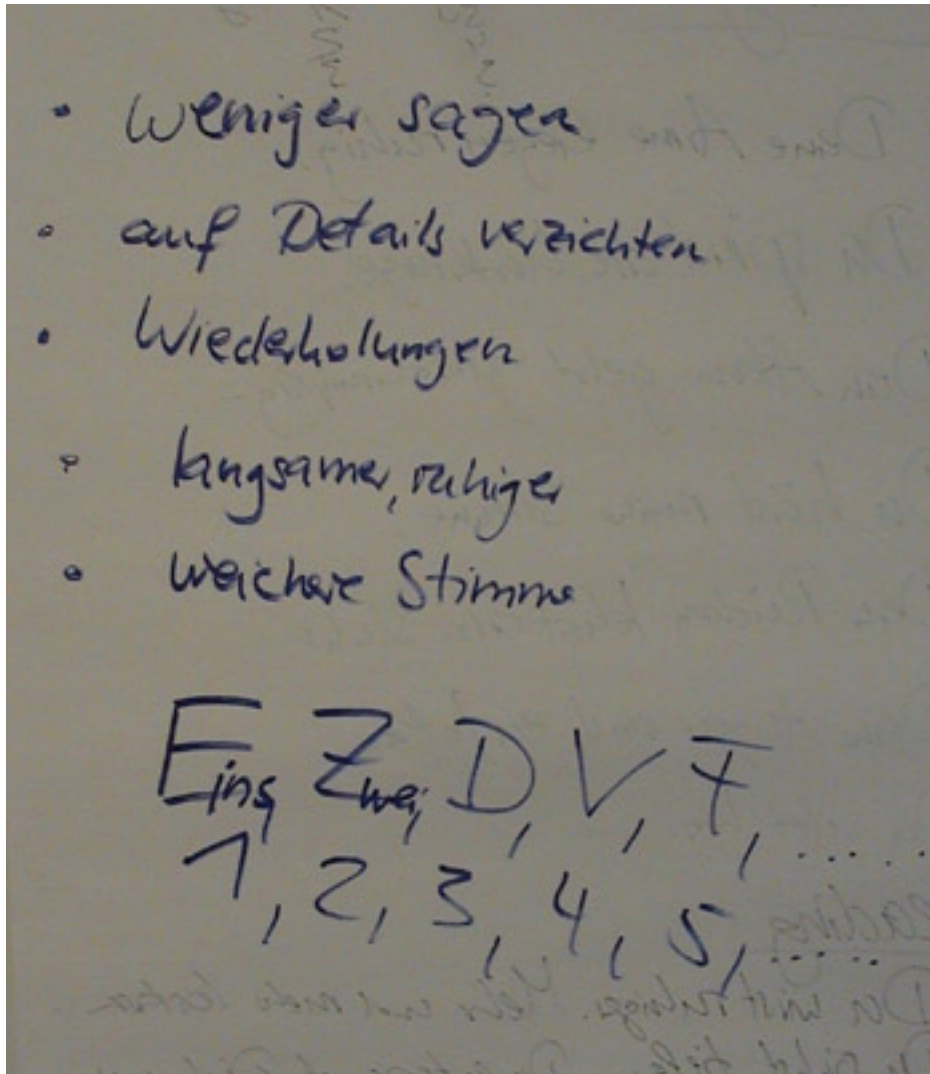 • weniger sagen
• auf Details verzichten
• Wiederholungen
• langsamer, ruhiger
• weichere Stimme
Eins, Zwei, D, V, F, .....
1, 2, 3, 4, 5, .....